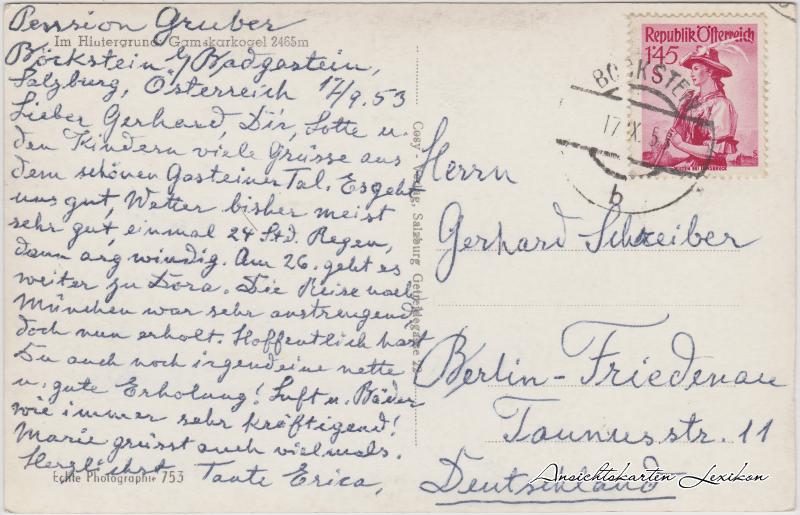 Pension Gruber
Im Hintergrund: Gamskarkogel 2465m
Böckstein b/Badgastein,
Salzburg, Österreich 17/9. 53
Lieber Gerhard, Dir, Lotte u.
den Kindern viele Grüsse aus
dem schönen Gasteiner Tal. Es geht
uns gut, Wetter bisher meist
sehr gut, einmal 24 Std. Regen,
dann arg windig. Am 26. geht es
weiter zu Dora. Die Reise nach
München war sehr anstrengend
doch nun erholt. Hoffentlich hast
Du auch noch irgendeine nette
u. gute Erholung! Luft u. Bäder
wie immer sehr kräftigend!
Marie grüsst auch vielmals.
Herzlichst Tante Erica,
Echte Photographie 753
Cosy-Verlag, Salzburg Getreidegasse 22
Republik Österreich
1'45
BÖCKSTEIN
17.IX.53
b
Herrn
Gerhard Schreiber
Berlin-Friedenau
Taunusstr. 11
Deutschland
Ansichtskarten Lexikon